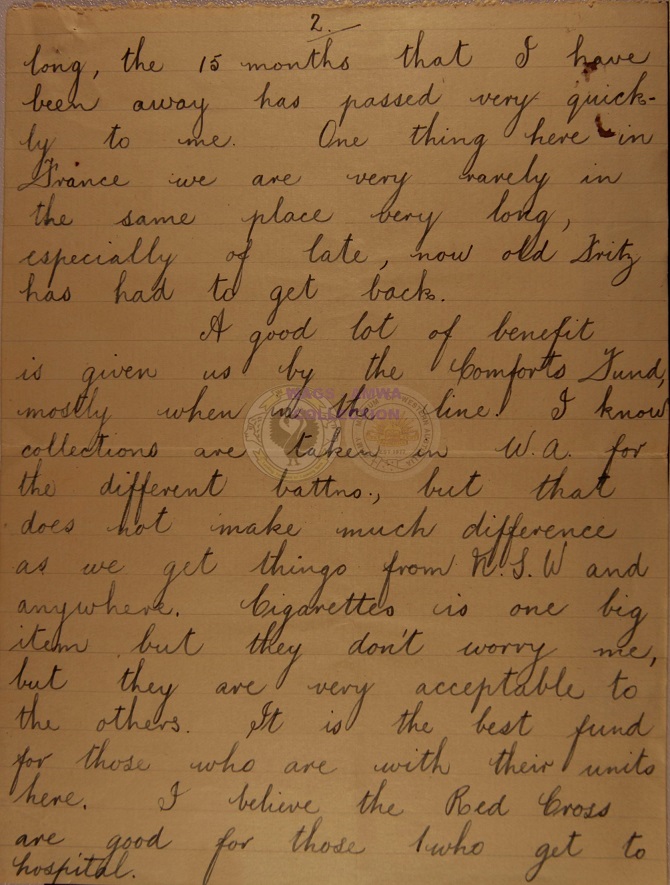 2.
long, the 15 months that I have
been away has passed very quick-
ly to me. One thing here in
France we are very rarely in
the same place very long,
especially of late, now old Fritz
has had to get back.
A good lot of benefit
is given us by the Comforts Fund,
mostly when in the line. I know
collections are taken in W.A. for
the different battns., but that
does not make much difference
as we get things from N.S.W and
anywhere. Cigarettes is one big
item but they don't worry me,
but they are very acceptable to
the others. It is the best fund
for those who are with their units
here. I believe the Red Cross
are good for those who get to
hospital.
MAGS AMWA
COLLECTION